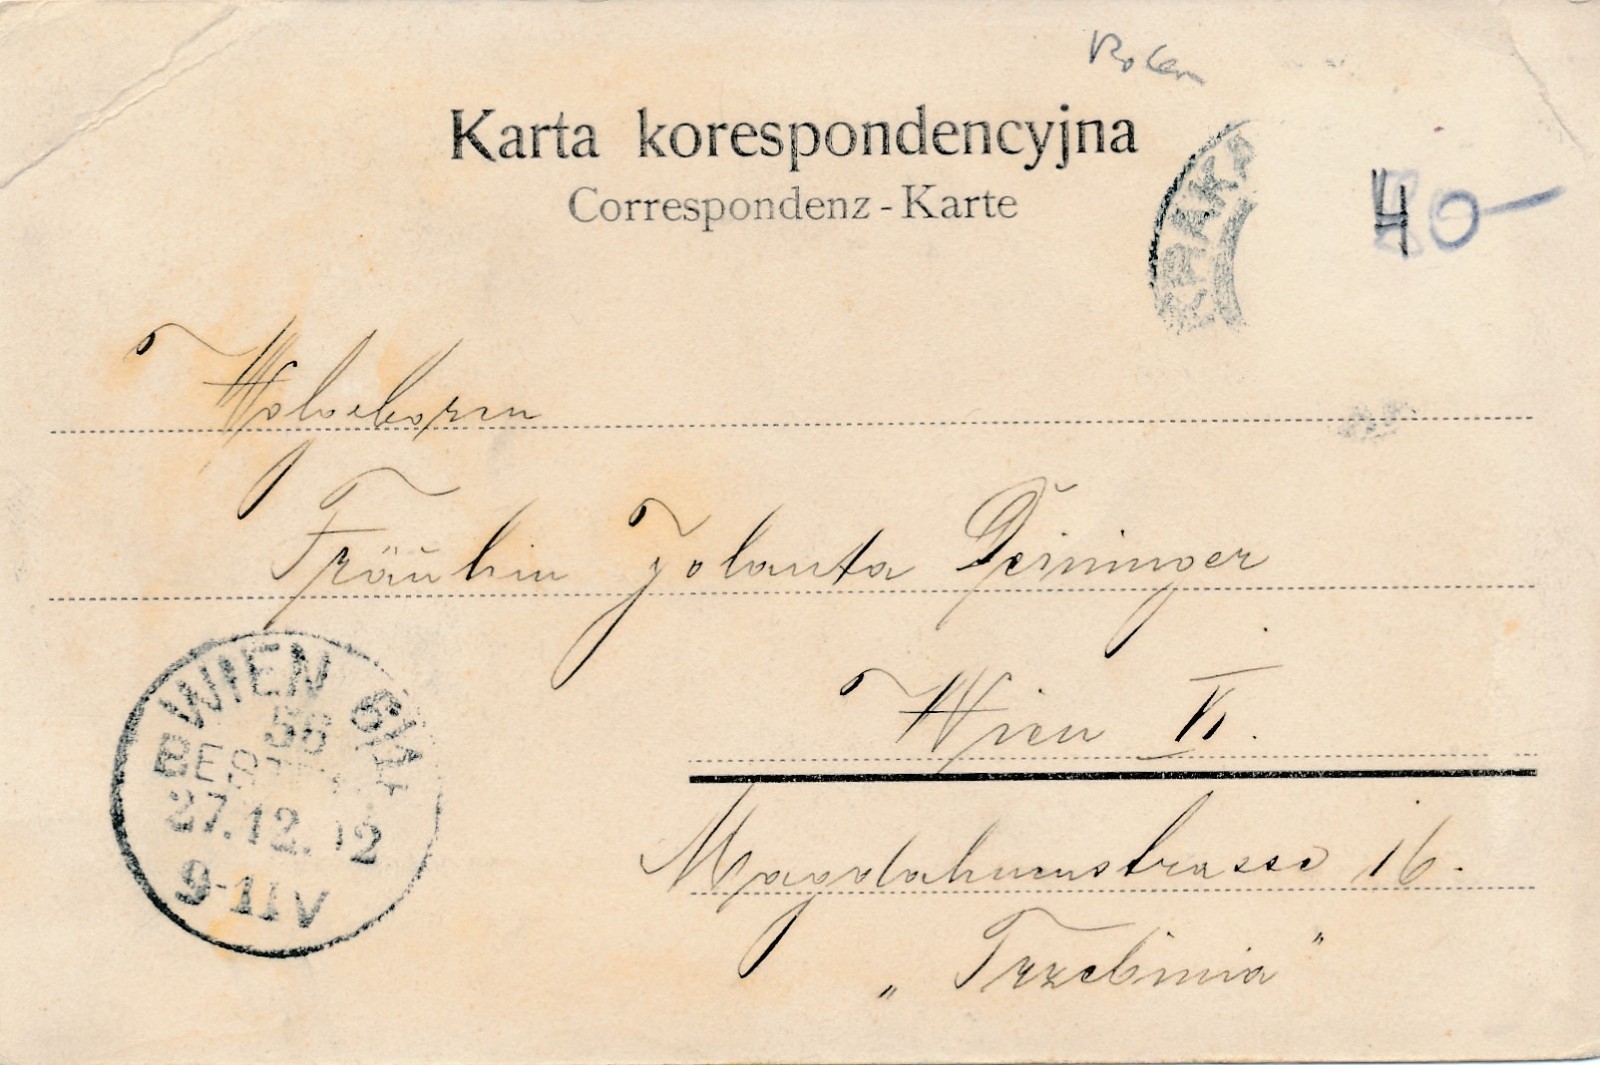 Polen
Karta korespondencyjna
Correspondenz-Karte
KRAK
40-
Wolgeboren
Fräulein Jolanta Deininger
WIEN 6/1
56
27.12.02
9-11V
Wien VI.
Magdalenenstrasse 16.
„Trzebinia"